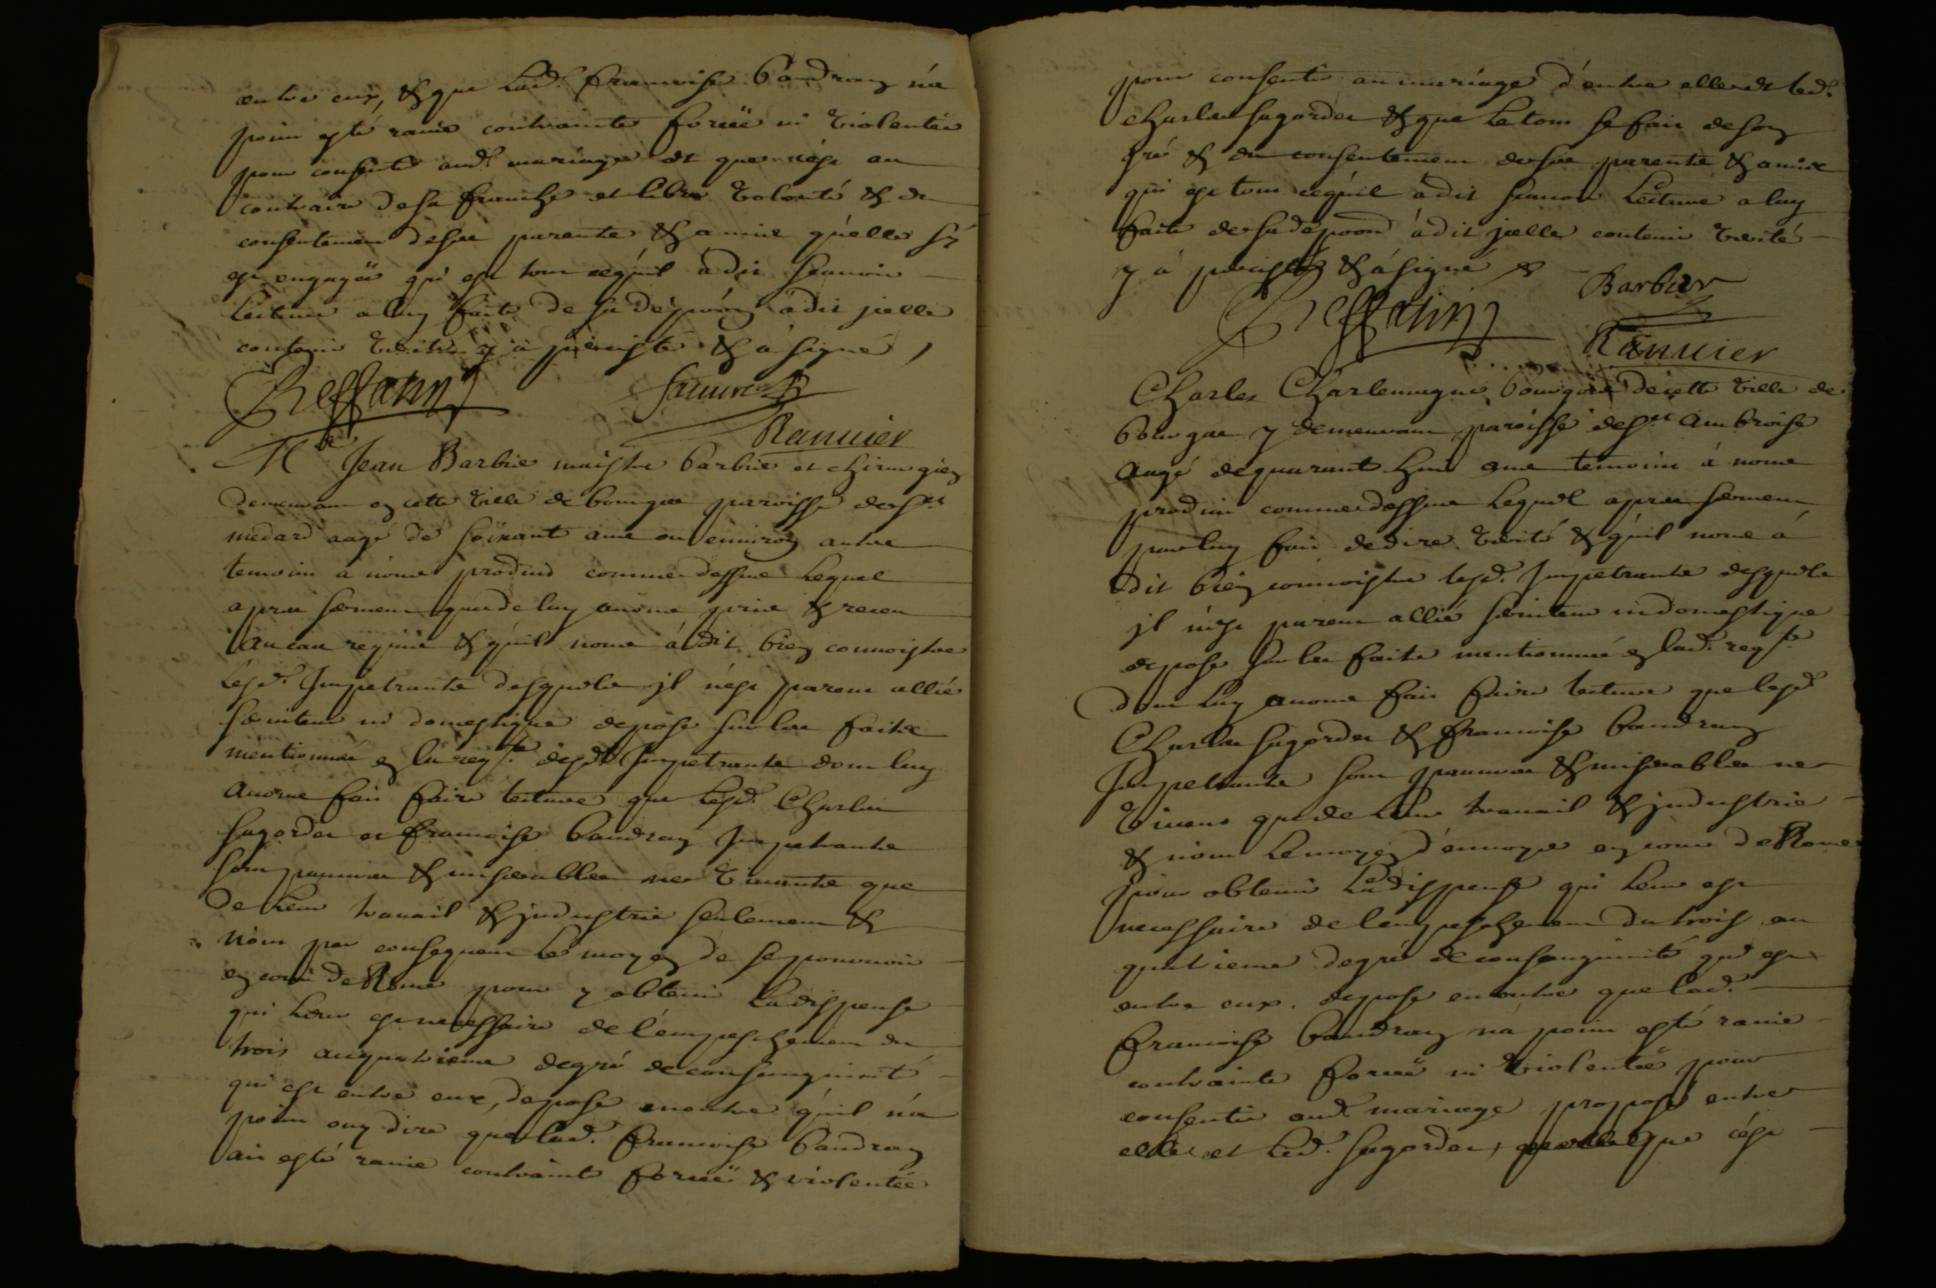 entre eux, & que lad. francoise baudran n'a
poin esté ravie contrainte forcée ni violentée
pour consentir aud. mariage et que c'est au
contraire de sa franche et libre volonté & du
consentement de ses parents & amis quelle s'i
est engagée qui est tout ce quil a dit scauoir
lecture a luy faite de sa depoōn a dit jcelle
contenir verité y a persisté & a signé,
Sauuert
Rannier
Me Jean Barbie maistre barbie et chirurgien
demeurant en cette ville de bourges paroisse de st
medard aagé de soixant ans ou environ autre
temoin a nous produit comme dessus lequel
apres serment que de luy auons pris & receu
au cas requis & quil nous a dit bien connoistre
lesd. Impetrants desquels il n'est parent allié
seruiteur ni domestique depose sur les faits
mentionnés en la reqte desd. Impetrants dont luy
auons fait faire lecture que lesd. Charles
sagordet et francoise baudran Impetrants
sont pauures & miserables ne viuants que
de leur trauail & industrie seulement &
n'ont par consequent le moyen de se pouruoir
en cour de Rome pour y obtenir la dispense
qui leur est necessaire de l'empeschement du
trois au quatrieme degré de consanguinité
qui est entre eux, depose en outre quil n'a
poin ouy dire que lad. francoise baudran
ait esté ravie contrainte forcée & violentée
pour consentir au mariage d'entre elle et led.
charles sagordet & que le tout se fait de son
gré & du consentement de ses parents & amis
qui est tout ce quil a dit scauoir lecture a luy
faite de sa depoōn a dit jcelle contenir verité
y a persisté & a signé
Barbier
Rannier
Charles Charlemagne bourgeois de cette ville de
bourges y demeurant paroisse de st Ambroise
aagé de quarant huit ans temoin a nous
produit comme dessus lequel apres serment
par luy fait de dire verité & quil nous a
dit bien connoistre lesd. Impetrants desquels
jl n'est parent allié seruiteur ni domestique
depose sur les faits mentionnés en lad. reqte
dont luy auons fait faire lecture que lesd.
Charles sagordet & francoise baudran
Impetrants sont pauures & miserables ne
viuent que de leur trauail & industrie
& n'ont le moyen d'enuoyer en cour de Rome
pour obtenir la dispense qui leur est
necessaire de l'empeschement du trois au
quatrieme degré de consanguinité qui est
entre eux. depose en outre que lad.
francoise baudran n'a poin esté ravie
contrainte forcée ni violentée pour
consentir aud. mariage proposé entre
elle et led. sagordet, que c'est